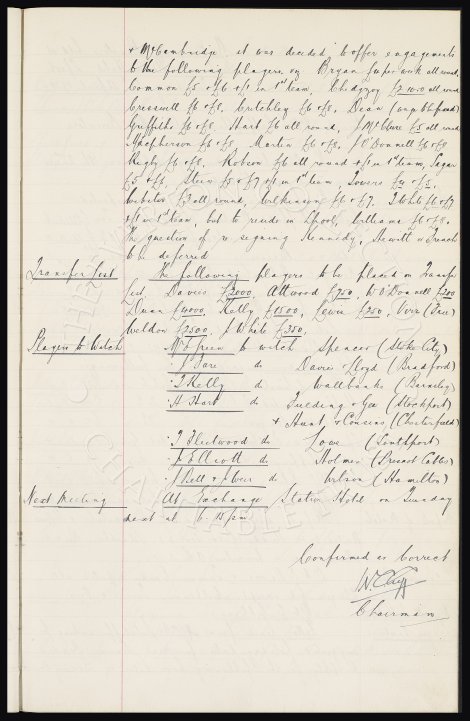 & McCambridge, it was decided to offer engagements
to the following players, viz Bryan £6 per wk all round,
Common £5 & £6 + £1 in 1st team, Chedgzoy £7-10-0 all round
Cresswell £8 & £8, Critchley £8 & £8, Dean
Griffiths £8 & £8, Hart £6 all round, J McClure £5 all round
Macpherson £8 & £8, Martin £6 & £8, J O'Donnell £8 & £8
Rigby £8 & £8, Robson £6 all round + £1 in 1st team, Sagar
£5 & £6, Stein £5 & £7 + £1 in 1st team, Towers £4 & £5,
Webster £3 all round, Wilkinson £6 & £7, T White £8 & £7
+ £1 in 1st team, but to reside in L'pool, Williams £8 & £8.
The question of re signing Kennedy, Hewitt & French
to be deferred
Transfer List The following players to be placed on Transfer
List Davies £2000, Attwood £750, W O'Donnell £200
Dunn £4000, Kelly £1500, Lewis £250,
Weldon £2500, J White £350,
Players to Watch Mr Green to watch Spencer (Stoke City)
" J Fare do Davies Lloyd (Bradford)
" T Kelly do Wallbanks (Barnsley)
" H Hart do Fielding & Gee (Stockport)
& Hunt & Cousins (Chesterfield)
" T Fleetwood do Lowe (Southport)
" J Elliott do Holmes (Prescot Cables)
" J Bell & Weir do Wilson (Hamilton)
Next Meeting At Exchange Station Hotel on Tuesday
next at 6.15 pm
Confirmed as Correct
W. C. Cuff
Chairman